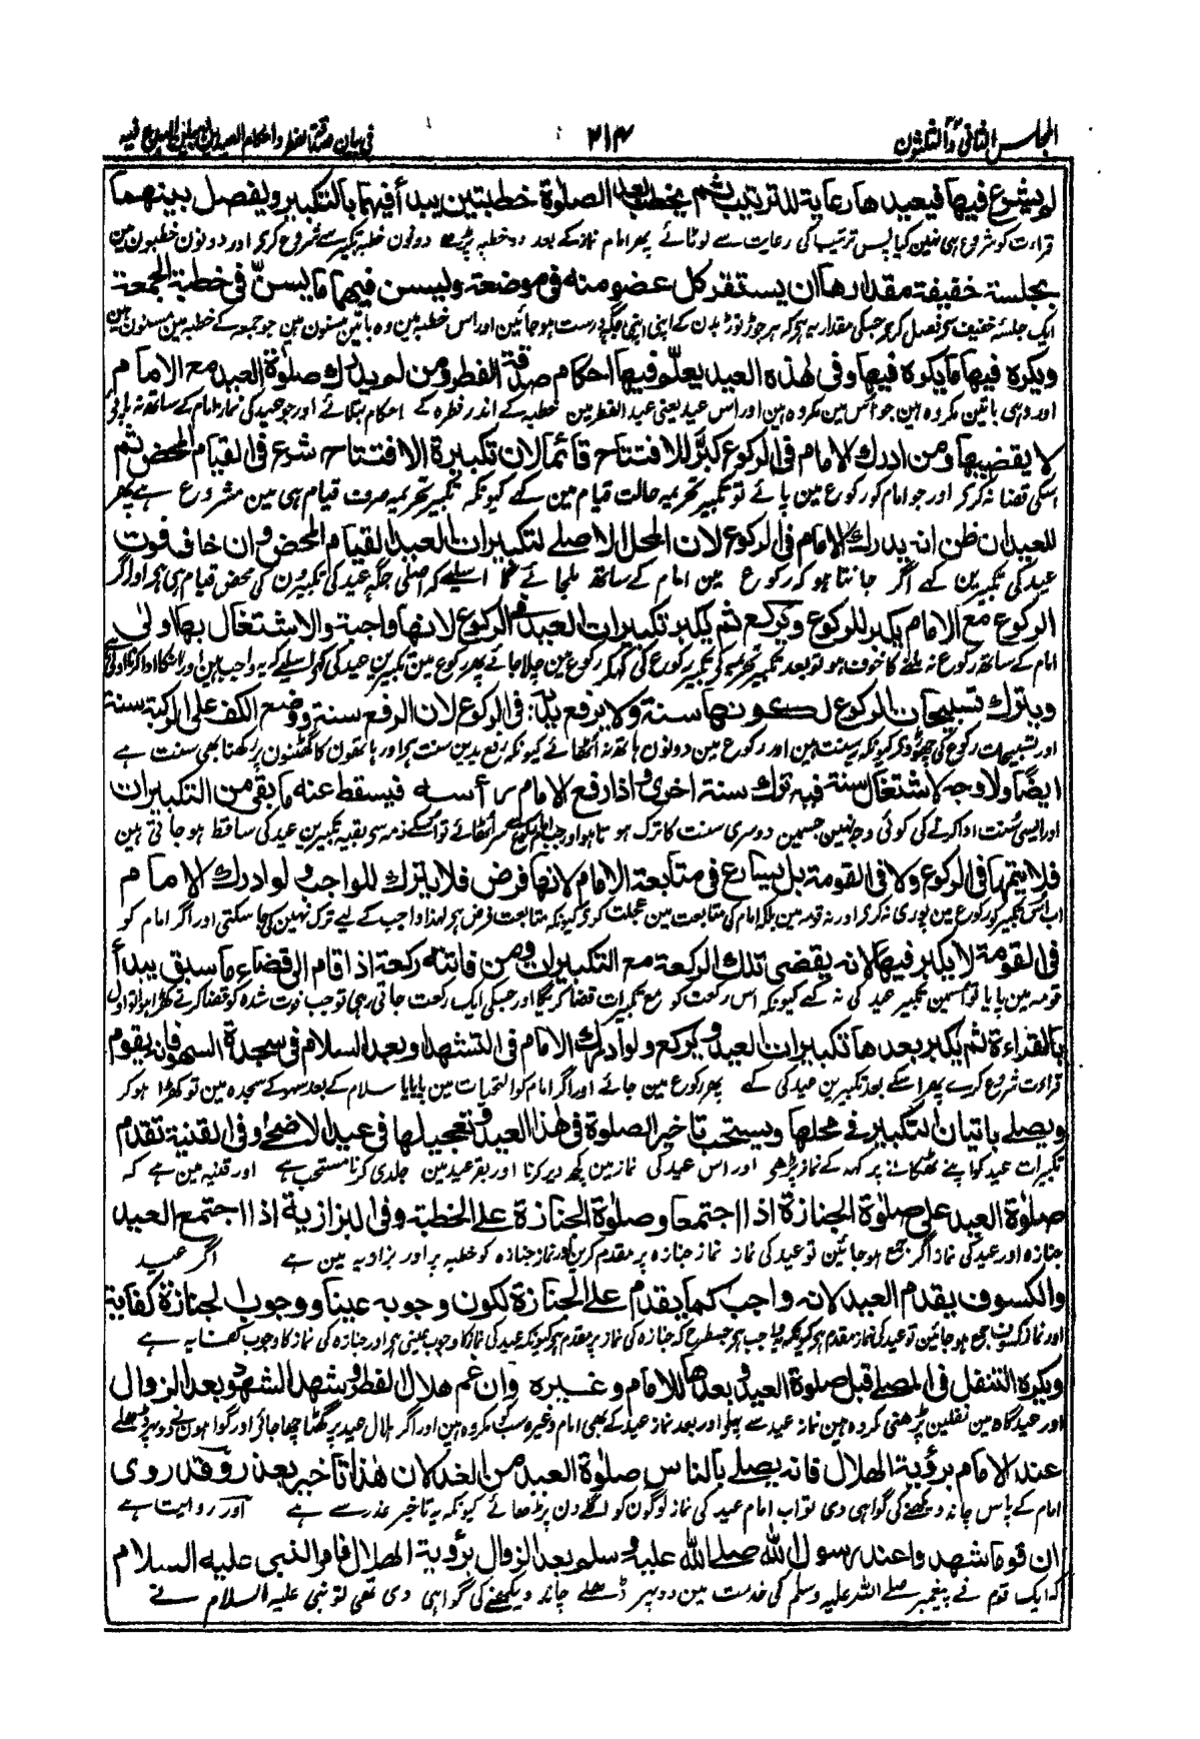 المجلس الثانی والثلثون ۲۱۴ فی بیان صدقة الفطر واحکام العیدین
لم یشرع فیھا فیعیدھا رعایة للترتیب ثم یخطب بعد الصلوة خطبتین یبدأ فیھما بالتکبیر ویفصل بینھما
قراءت کو شروع ہی نہین کیا پس ترتیب کی رعایت سے لوٹائے پھر امام نماز کے بعد دو خطبہ پڑھے دونون خطبہ تکبیر سے شروع کرے اور دونون خطبون مین
بجلسة خفیفة مقدارھا ان یستقر کل عضو منه فی موضعة ویسن فیھا ما یسن فی خطبة الجمعة
ایک جلسۂ خفیف سے فصل کرے جسکی مقدار یہ ہے کہ ہر جوڑ توڑ بدن کے اپنی اپنی جگہ درست ہو جائین اور اس خطبہ مین وہ باتین مسنون ہین جو جمعہ کے خطبہ مین مسنون ہین
ویکره فیھا ما یکره فیھا وفی ھذه العید یعلم فیھا احکام صدقة الفطر ومن لم یدرك صلوة العید مع الامام
اور وہی باتین مکروہ ہین جو اُس مین مکروہ ہین اور اس عید یعنی عید الفطر مین خطبہ کے اندر فطرہ کے احکام بتلائے اور جو عید کی نماز امام کے ساتھ نہ پائے
لا یقضیھا ومن ادرك الامام فی الرکوع کبر للافتتاح قائما لان تکبیرة الافتتاح شرع فی القیام المحض ثم
اسکی قضا نہ کرے اور جو امام کو رکوع مین پائے تو تکبیر تحریمہ حالت قیام مین کہے کیونکہ تکبیر تحریمہ صرف قیام ہی مین مشروع ہے پھر
للعید ان ظن انه یدرك الامام فی الرکوع لان المحل الاصلے لتکبیرات العید القیام المحض وان خاف فوت
عید کی تکبیرین کہے اگر جانتا ہو کہ رکوع مین امام کے ساتھ ملجائے گا اسلیے کہ اصلی جگہ عید کی تکبیرون کی محض قیام ہی ہے اور اگر
الرکوع مع الامام یکبر للرکوع ویرکع ثم یکبر تکبیرات العید فی الرکوع لانھا واجبة والاشتغال بھا اولی
امام کے ساتھ رکوع نہ ملنے کا خوف ہو تو بعد تکبیر تحریمہ کے تکبیر رکوع کی کہکر رکوع مین چلا جائے پھر رکوع مین تکبیرین عید کی کہے اسلیے کہ یہ واجب ہین اور انکا ادا کرنا اولی ہے
ویترك تسبیحات الرکوع لکونھا سنة ولا یرفع یدیه فی الرکوع لان الرفع سنة ووضع الکف علی الرکبة سنة
اور تسبیحات رکوع کی چھوڑ دے کیونکہ سنت ہین اور رکوع مین دونون ہاتھ نہ اُٹھائے کیونکہ رفع یدین سنت ہے اور ہاتھون کا گھٹنون پر رکھنا بھی سنت ہے
ایضا ولا وجه لاشتغال سنة فیه ترك سنة اخری واذا رفع الامام رأسه فیسقط عنه ما بقی من التکبیرات
اور ایسی سُنت ادا کرنے کی کوئی وجہ نہین جسمین دوسری سنت کا ترک ہوتا ہو اور جب امام سر اُٹھائے تو اُسکے ذمہ سے بقیہ تکبیرین عید کی ساقط ہو جاتی ہین
فلا یتمھا فی الرکوع ولا فی القومة بل یسارع فی متابعة الامام لانھا فرض فلا یترك للواجب ولو ادرك الامام
اب اس تکبیر کو رکوع مین پوری نہ کرے اور نہ قومہ مین بلکہ امام کی متابعت مین عجلت کرے کیونکہ متابعت فرض ہے لہذا واجب کے لیے ترک نہین کی جا سکتی اور اگر امام کو
فی القومة لا یکبر فیھا لانه یقضی تلك الرکعة مع التکبیرات ومن فاتته رکعة اذا قام الی قضاء ما سبق یبدأ
قومہ مین پایا تو اسمین تکبیر عید کی نہ کہے کیونکہ اس رکعت کو مع تکبیرات قضا کریگا اور جسکی ایک رکعت جاتی رہی تو جب فوت شدہ کو قضا کرنے کھڑا ہو تو اول
بالقراءة ثم یکبر بعدھا تکبیرات العید ویرکع ولو ادرك الامام فی التشھد او بعد السلام فی سجدة السھو فانه یقوم
قراءت شروع کرے پھر اسکے بعد تکبیرین عید کی کہے پھر رکوع مین جائے اور اگر امام کو التحیات مین پایا یا سلام کے بعد سہو کے سجدہ مین تو کھڑا ہو کر
ویصلے باتیان التکبیر فے محلھا ویستحب تاخیر الصلوة فی ھذا العید وتعجیلھا فی عید الاضحے وفی القنیة تقدم
تکبیرات عید کو اپنے ٹھکانے پر کہہ کے نماز پڑھے اور اس عید کی نماز مین کچھ دیر کرنا اور بقر عید مین جلدی کرنا مستحب ہے اور قنیہ مین ہے کہ
صلوة العید علی صلوة الجنازة اذا اجتمعا وصلوة الجنازة علے الخطبة وفی البزازیة اذا اجتمع العید
جنازہ اور عید کی نماز اگر جمع ہو جائین تو عید کی نماز نماز جنازہ پر مقدم کرین اور نماز جنازہ کو خطبہ پر اور بزازیہ مین ہے اگر عید
والکسوف یقدم العید لانه واجب کما یقدم علے الجنازة لکون وجوبه عینا ووجوب الجنازة کفایة
اور نماز کسوف جمع ہو جائین تو عید کی نماز مقدم ہے کیونکہ یہ واجب ہے جسطرح کہ جنازہ کی نماز پر مقدم ہے کیونکہ عید کی نماز کا وجوب عینی ہے اور جنازہ کی نماز کا وجوب کفایہ ہے
ویکره التنفل فی المصلے قبل صلوة العید وبعدھا للامام وغیره وان غم ھلال الفطر وشھد الشھود بعد الزوال
اور عیدگاہ مین نفلین پڑھنی مکروہ ہین نماز عید سے پہلے اور بعد نماز عید کے بھی امام وغیرہ سب کو مکروہ ہین اور اگر ہلال عید پر گھٹا چھا جائے اور گواہون نے دوپہر ڈھلے
عند الامام برؤیة الھلال فانه یصلے بالناس صلوة العید من الغد لان ھذا تاخیر بعذر وقد روی
امام کے پاس چاند دیکھنے کی گواہی دی تو اب امام عید کی نماز لوگون کو اگلے دن پڑھائے کیونکہ یہ تاخیر عذر سے ہے اور روایت ہے
ان قوما شھدوا عند رسول الله صلے الله علیه وسلم بعد الزوال برؤیة الھلال فامر النبی علیه السلام
کہ ایک قوم نے پیغمبر صلے اللہ علیہ وسلم کی خدمت مین دوپہر ڈھلے چاند دیکھنے کی گواہی دی تھی تو نبی علیہ السلام نے